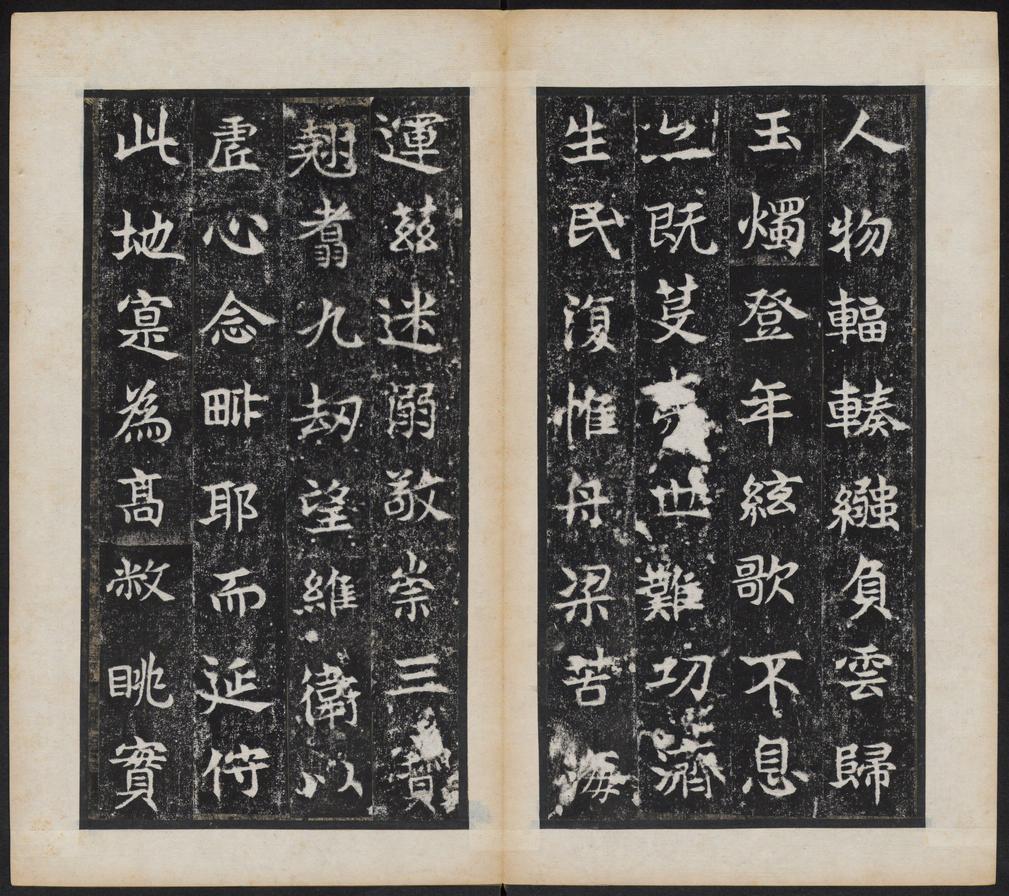 人物輻輳繦負雲歸
玉燭登年絃歌不息
既芟夷世難功濟
生民復惟舟梁苦海
運兹迷溺敬崇三寶
翹耆九劫望維衛以
虛心念毗耶而延佇
此地寔為髙敞眺實